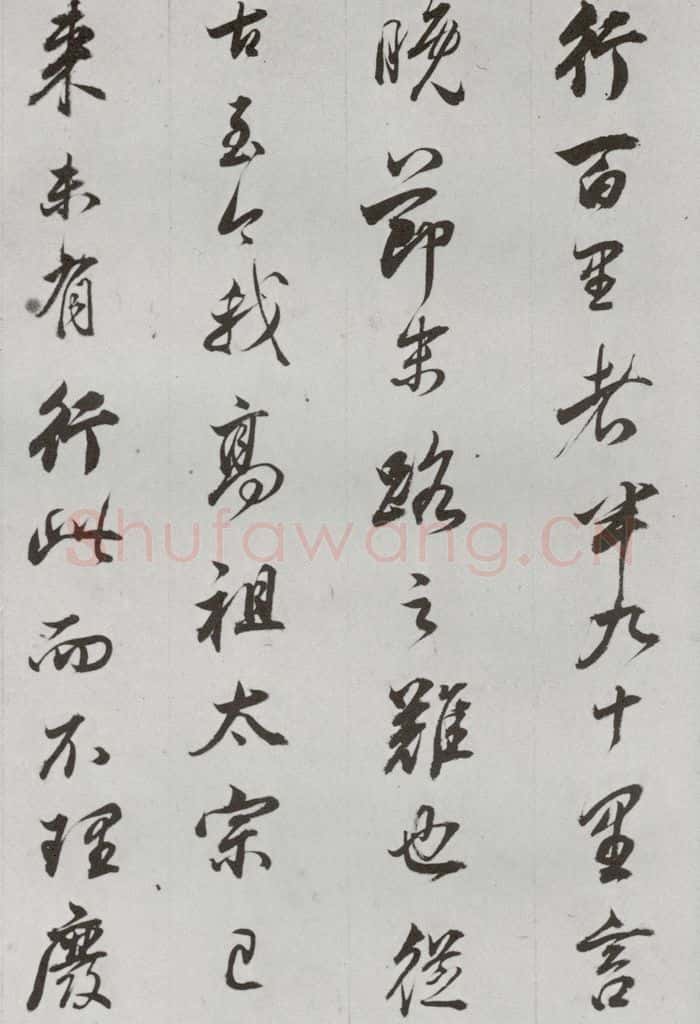 行百里者半九十里言
晚節末路之難也從
古至今我高祖太宗已
來未有行此而不理廢
Shufawang.CN